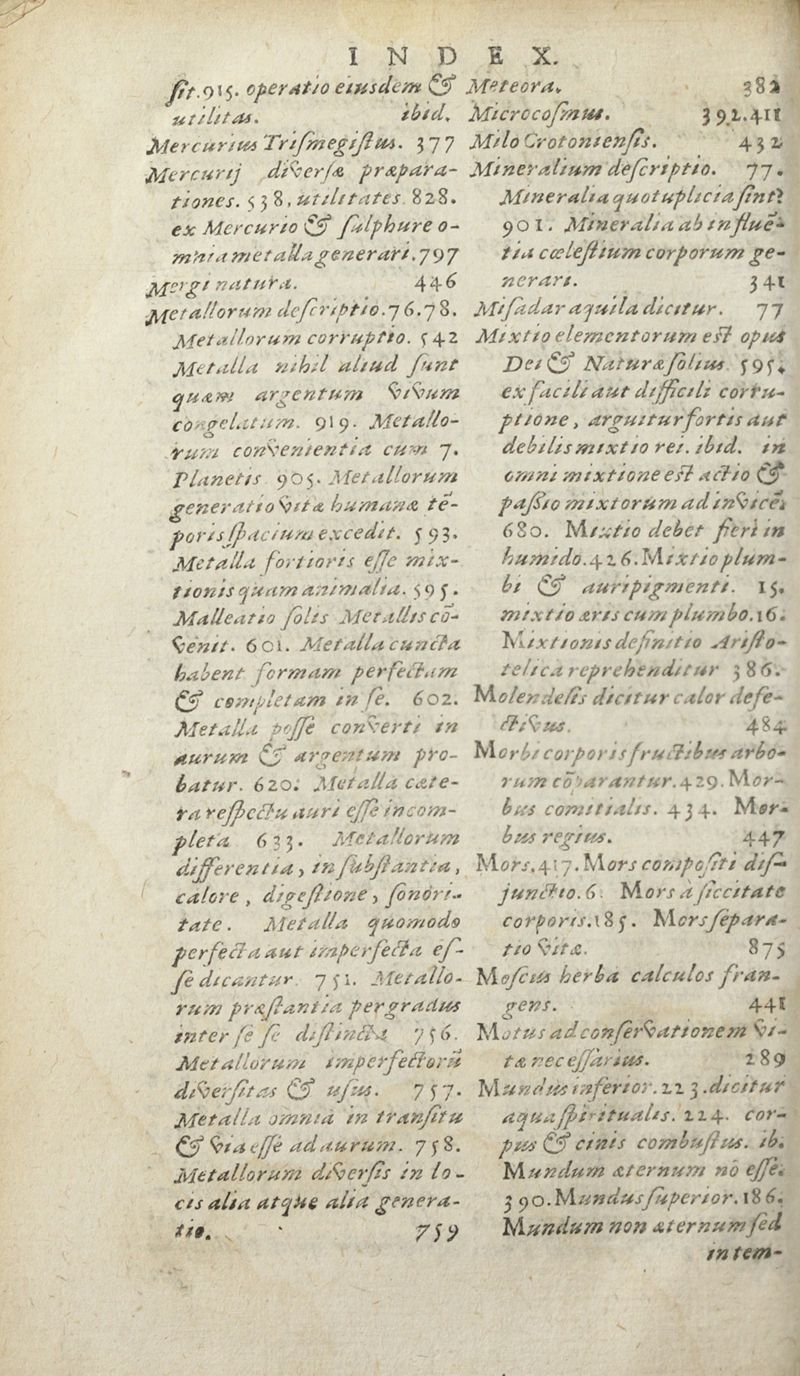 INDEX.
fit. 915. operatio eiusdem &
utilitas. ibid.
Mercurius Trismegistus. 377
Mercurij diversæ præpara-
tiones. 538, utilitates. 828.
ex Mercurio & sulphure o-
mnia metalla generari. 797
Mergi natura. 446
Metallorum descriptio. 76. 78.
Metallorum corruptio. 542
Metalla nihil aliud sunt
quam argentum vivum
congelatum. 919. Metallo-
rum convenientia cum 7.
Planetis 905. Metallorum
generatio vitæ humanæ tē-
poris spacium excedit. 593.
Metalla fortioris esse mix-
tionis quam animalia. 595.
Malleatio solis Metallis cō-
venit. 601. Metalla cuncta
habent formam perfectam
& completam in se. 602.
Metalla posse converti in
aurum & argentum pro-
batur. 620. Metalla cæte-
ra respectu auri esse incom-
pleta 633. Metallorum
differentia, in substantia,
calore, digestione, sonori-
tate. Metalla quomodo
perfecta aut imperfecta es-
se dicantur 751. Metallo-
rum præstantia per gradus
inter se se distincta 756.
Metallorum imperfectorū
diversitas & usus. 757.
Metalla omnia in transitu
& via esse ad aurum. 758.
Metallorum diversis in lo-
cis alia atque alia genera-
tio. 759
Meteora. 382
Microcosmus. 392. 411
Milo Crotoniensis. 432
Mineralium descriptio. 77.
Mineralia quotuplicia sint?
901. Mineralia ab influē-
tia cœlestium corporum ge-
nerari. 341
Misadar aquila dicitur. 77
Mixtio elementorum est opus
Dei & Naturæ solius. 595.
ex facili aut difficili corru-
ptione, arguitur fortis aut
debilis mixtio rei. ibid. in
omni mixtione est actio &
passio mixtorum ad invicē.
680. Mixtio debet fieri in
humido. 426. Mixtio plum-
bi & auripigmenti. 15.
mixtio æris cum plumbo. 16.
Mixtionis definitio Aristo-
telica reprehenditur 386.
Molendesis dicitur calor defe-
ctivus. 484
Morbi corporis fructibus arbo-
rum cōparantur. 429. Mor-
bus comitialis. 434. Mor-
bus regius. 447
Mors. 417. Mors compositi dis-
junctio. 6. Mors a siccitate
corporis. 185. Mors separa-
tio vitæ. 875
Moscus herba calculos fran-
gens. 441
Motus ad conservationem vi-
tæ necessarius. 289
Mundus inferior. 223. dicitur
aqua spiritualis. 224. cor-
pus & cinis combustus. ib.
Mundum æternum nō esse.
390. Mundus superior. 186.
Mundum non æternum sed
in tem-